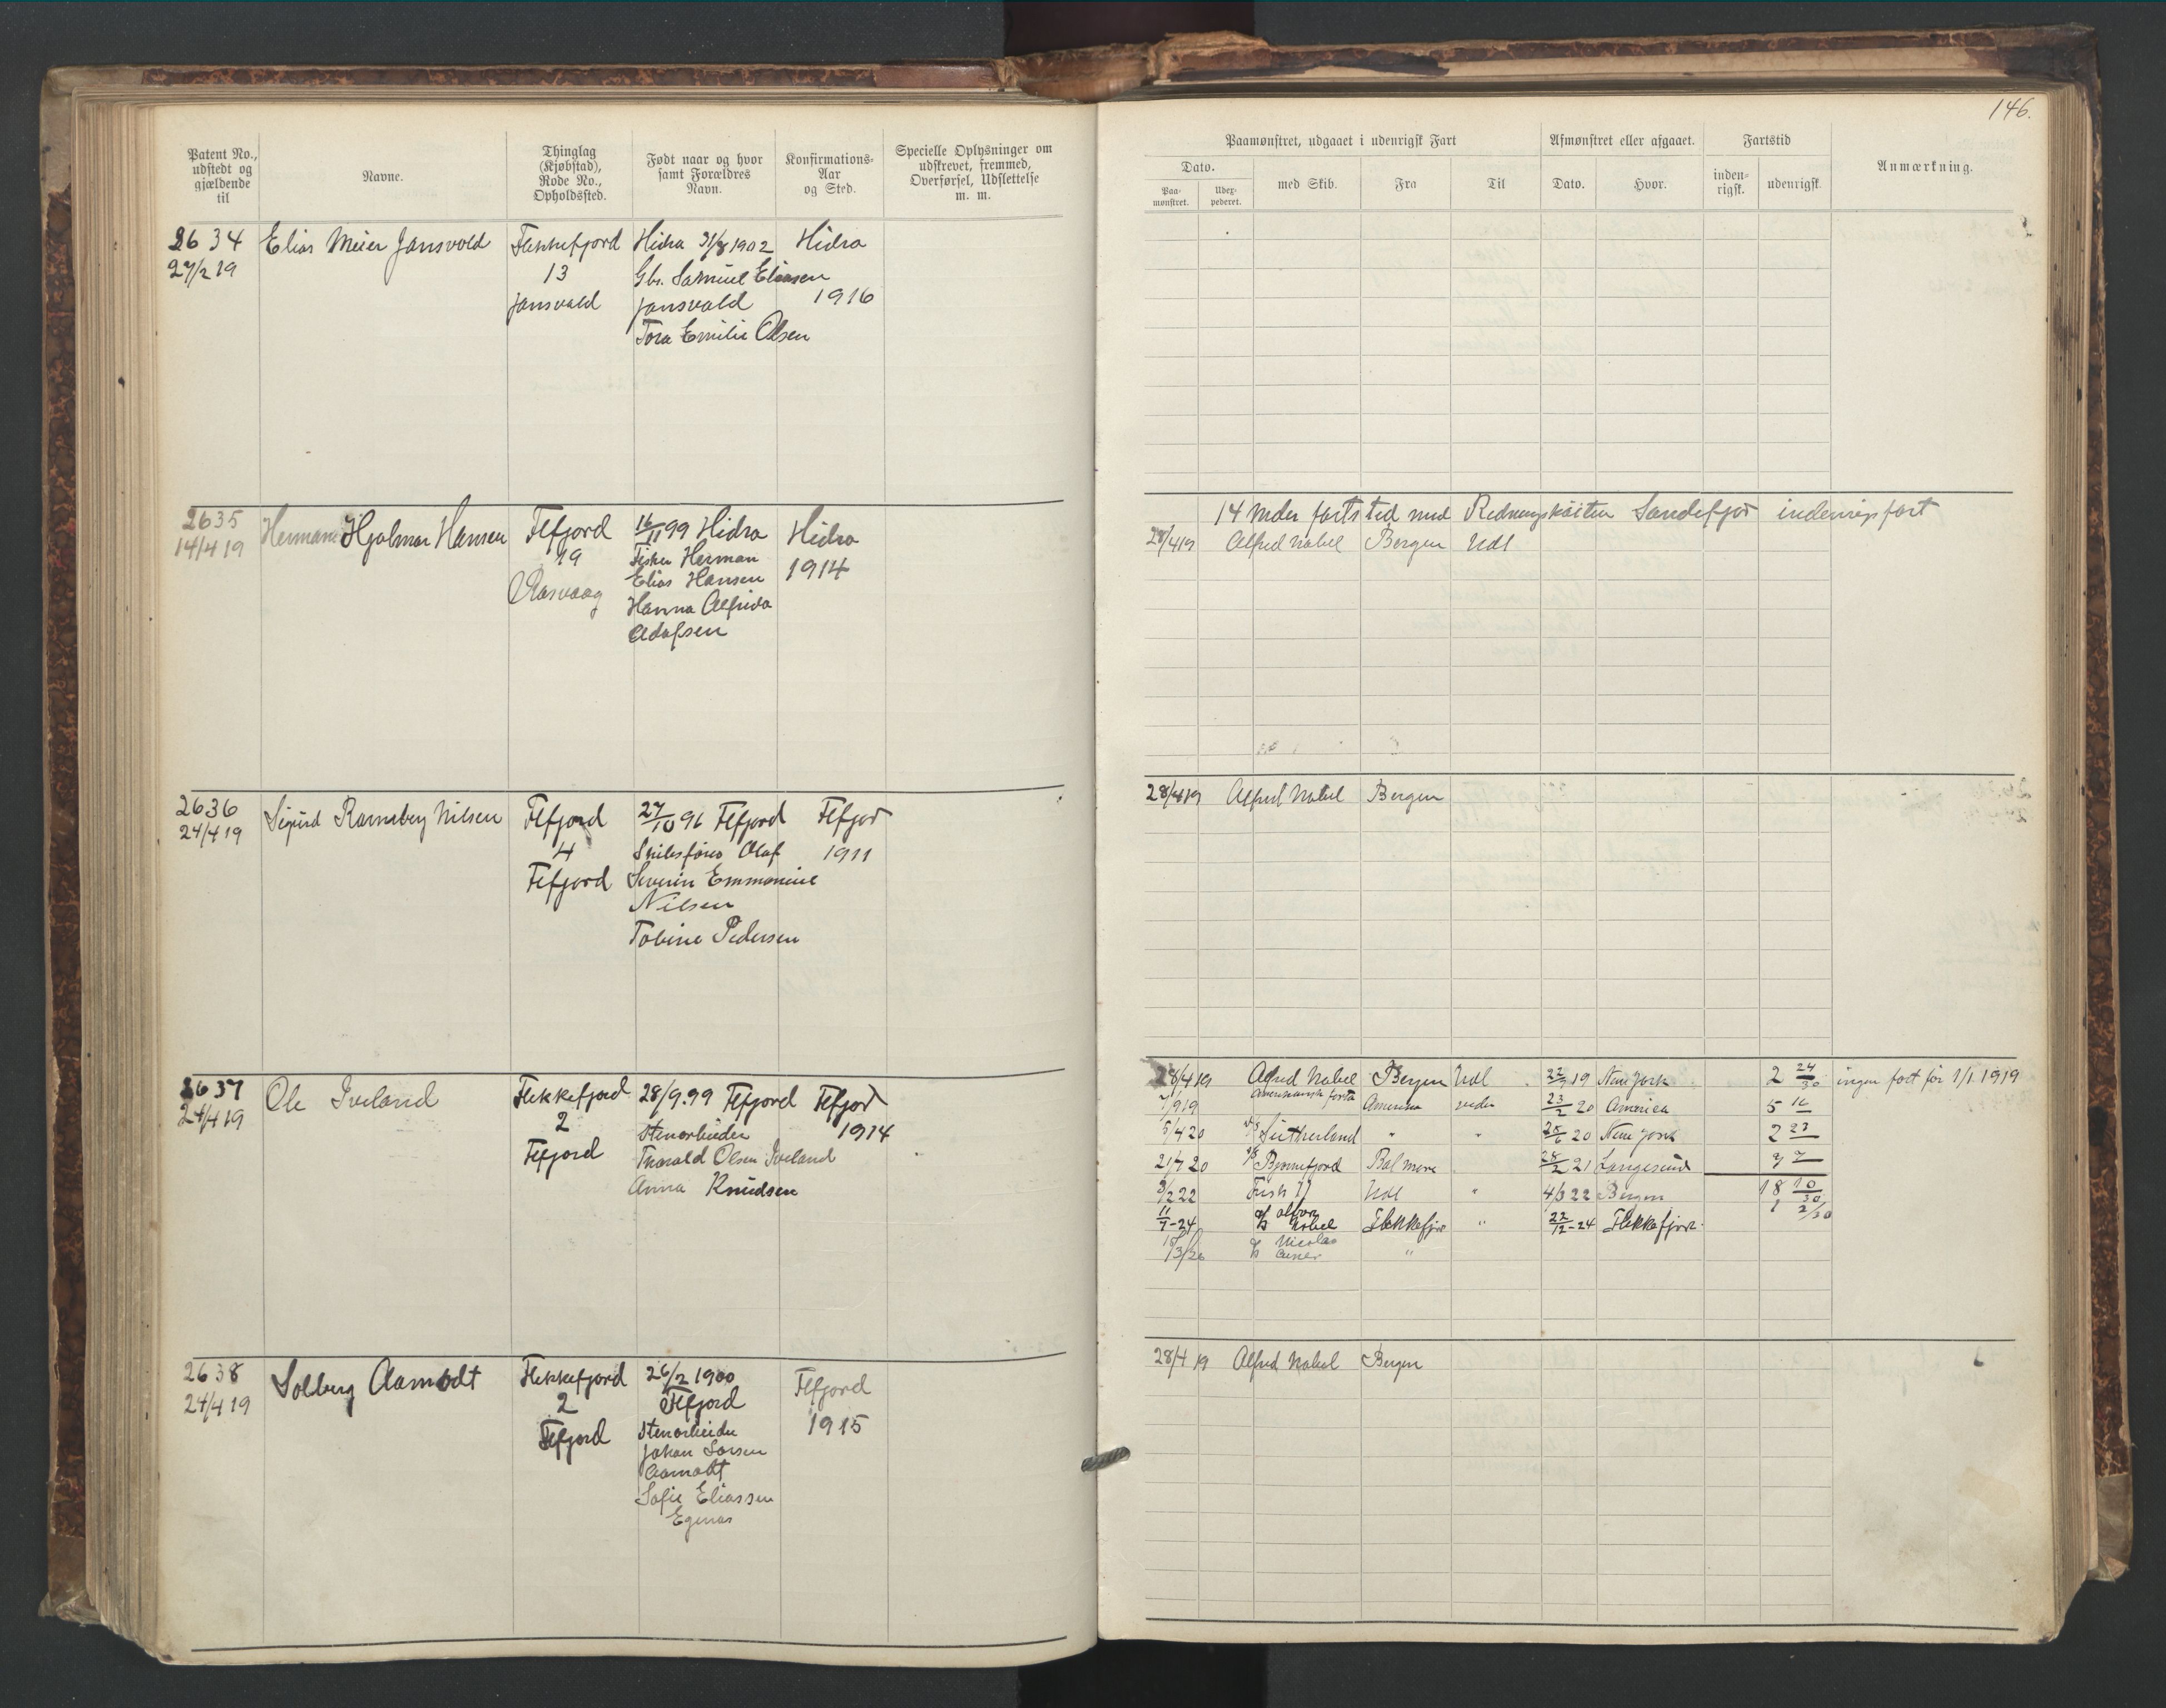 146.
Patent No., udstedt og gjældende til
Navne.
Thinglag (Kjøbstad), Rode No., Opholdssted.
Født naar og hvor samt Forældres Navn.
Konfirmations-Aar og Sted.
Specielle Oplysninger om udskrevet, fremmed, Overførsel, Udslettelse m. m.
Paamønstret, udgaaet i udenrigsk Fart
Afmønstret eller afgaaet.
Fartstid
Anmærkning.
Dato.
Paa-mønstret.
Udex-pederet.
med Skib.
Fra
Til
Dato.
Hvor.
inden-rigsk.
udenrigsk.
2634 Elias Meier Jansvold Flekkefjord Hidra 31/8 1902 Hidra
27/2 19 13 Gbr. Samuel Eliasen
Jansvold Jansvold 1916
Tora Emilie Olsen
2635 Hermann Hjalmar Hansen Flfjord 16/11 99 Hidra Hidra
14/4 19 19 Fisker Herman
Aasvaag Elias Hansen 1914
Hanna Alfrida
Adolfsen
14 mdr fartstid med Redningskøiten Sandefjor indenrigsfart
28/4 19 Alfred Nobel Bergen Udl
2636 Sigurd Ramsberg Nilsen Flfjord 27/10 96 Flfjord Flfjor
24/4 19 4 Skibsfører Olaf 1911
Flfjord Severin Emmanuel
Nilsen
Tobine Pedersen
28/4 19 Alfred Nobel Bergen
2637 Ole Iveland Flekkefjord 28/9.99 Flfjord Flfjor
24/4 19 2 Stenarbeider 1914
Flfjord Thorald Olsen Iveland
Anna Knudsen
28/4 19 Alfred Nobel Bergen Udl 22/7 19 New York 2 24/30 ingen fart før 1/1 1919
7/9 19 Amerikansk farts Amerika 23/2 20 America 5 16
5/4 20 Sutherland " " 28/6 20 New York 2 23
21/7 20 Bonnefjord Balmore 28/2 21 Langesund 7 7
3/2 22 Fisk II Udl " 4/3 22 Bergen 18 10/30
1 2/30
11/7-24 Nobel Flekkefjor " 22/12-24 Flekkefjor
15/3/26 Nicolas "
2638 Solberg Aamodt Flekkefjord 26/2 1900 Flfjord
24/4 19 2 Flfjord 1915
Flfjord Stenarbeider
Johan Larsen
Aamodt
Sofie Eliassen
Egenæs
28/4 19 Alfred Nobel Bergen